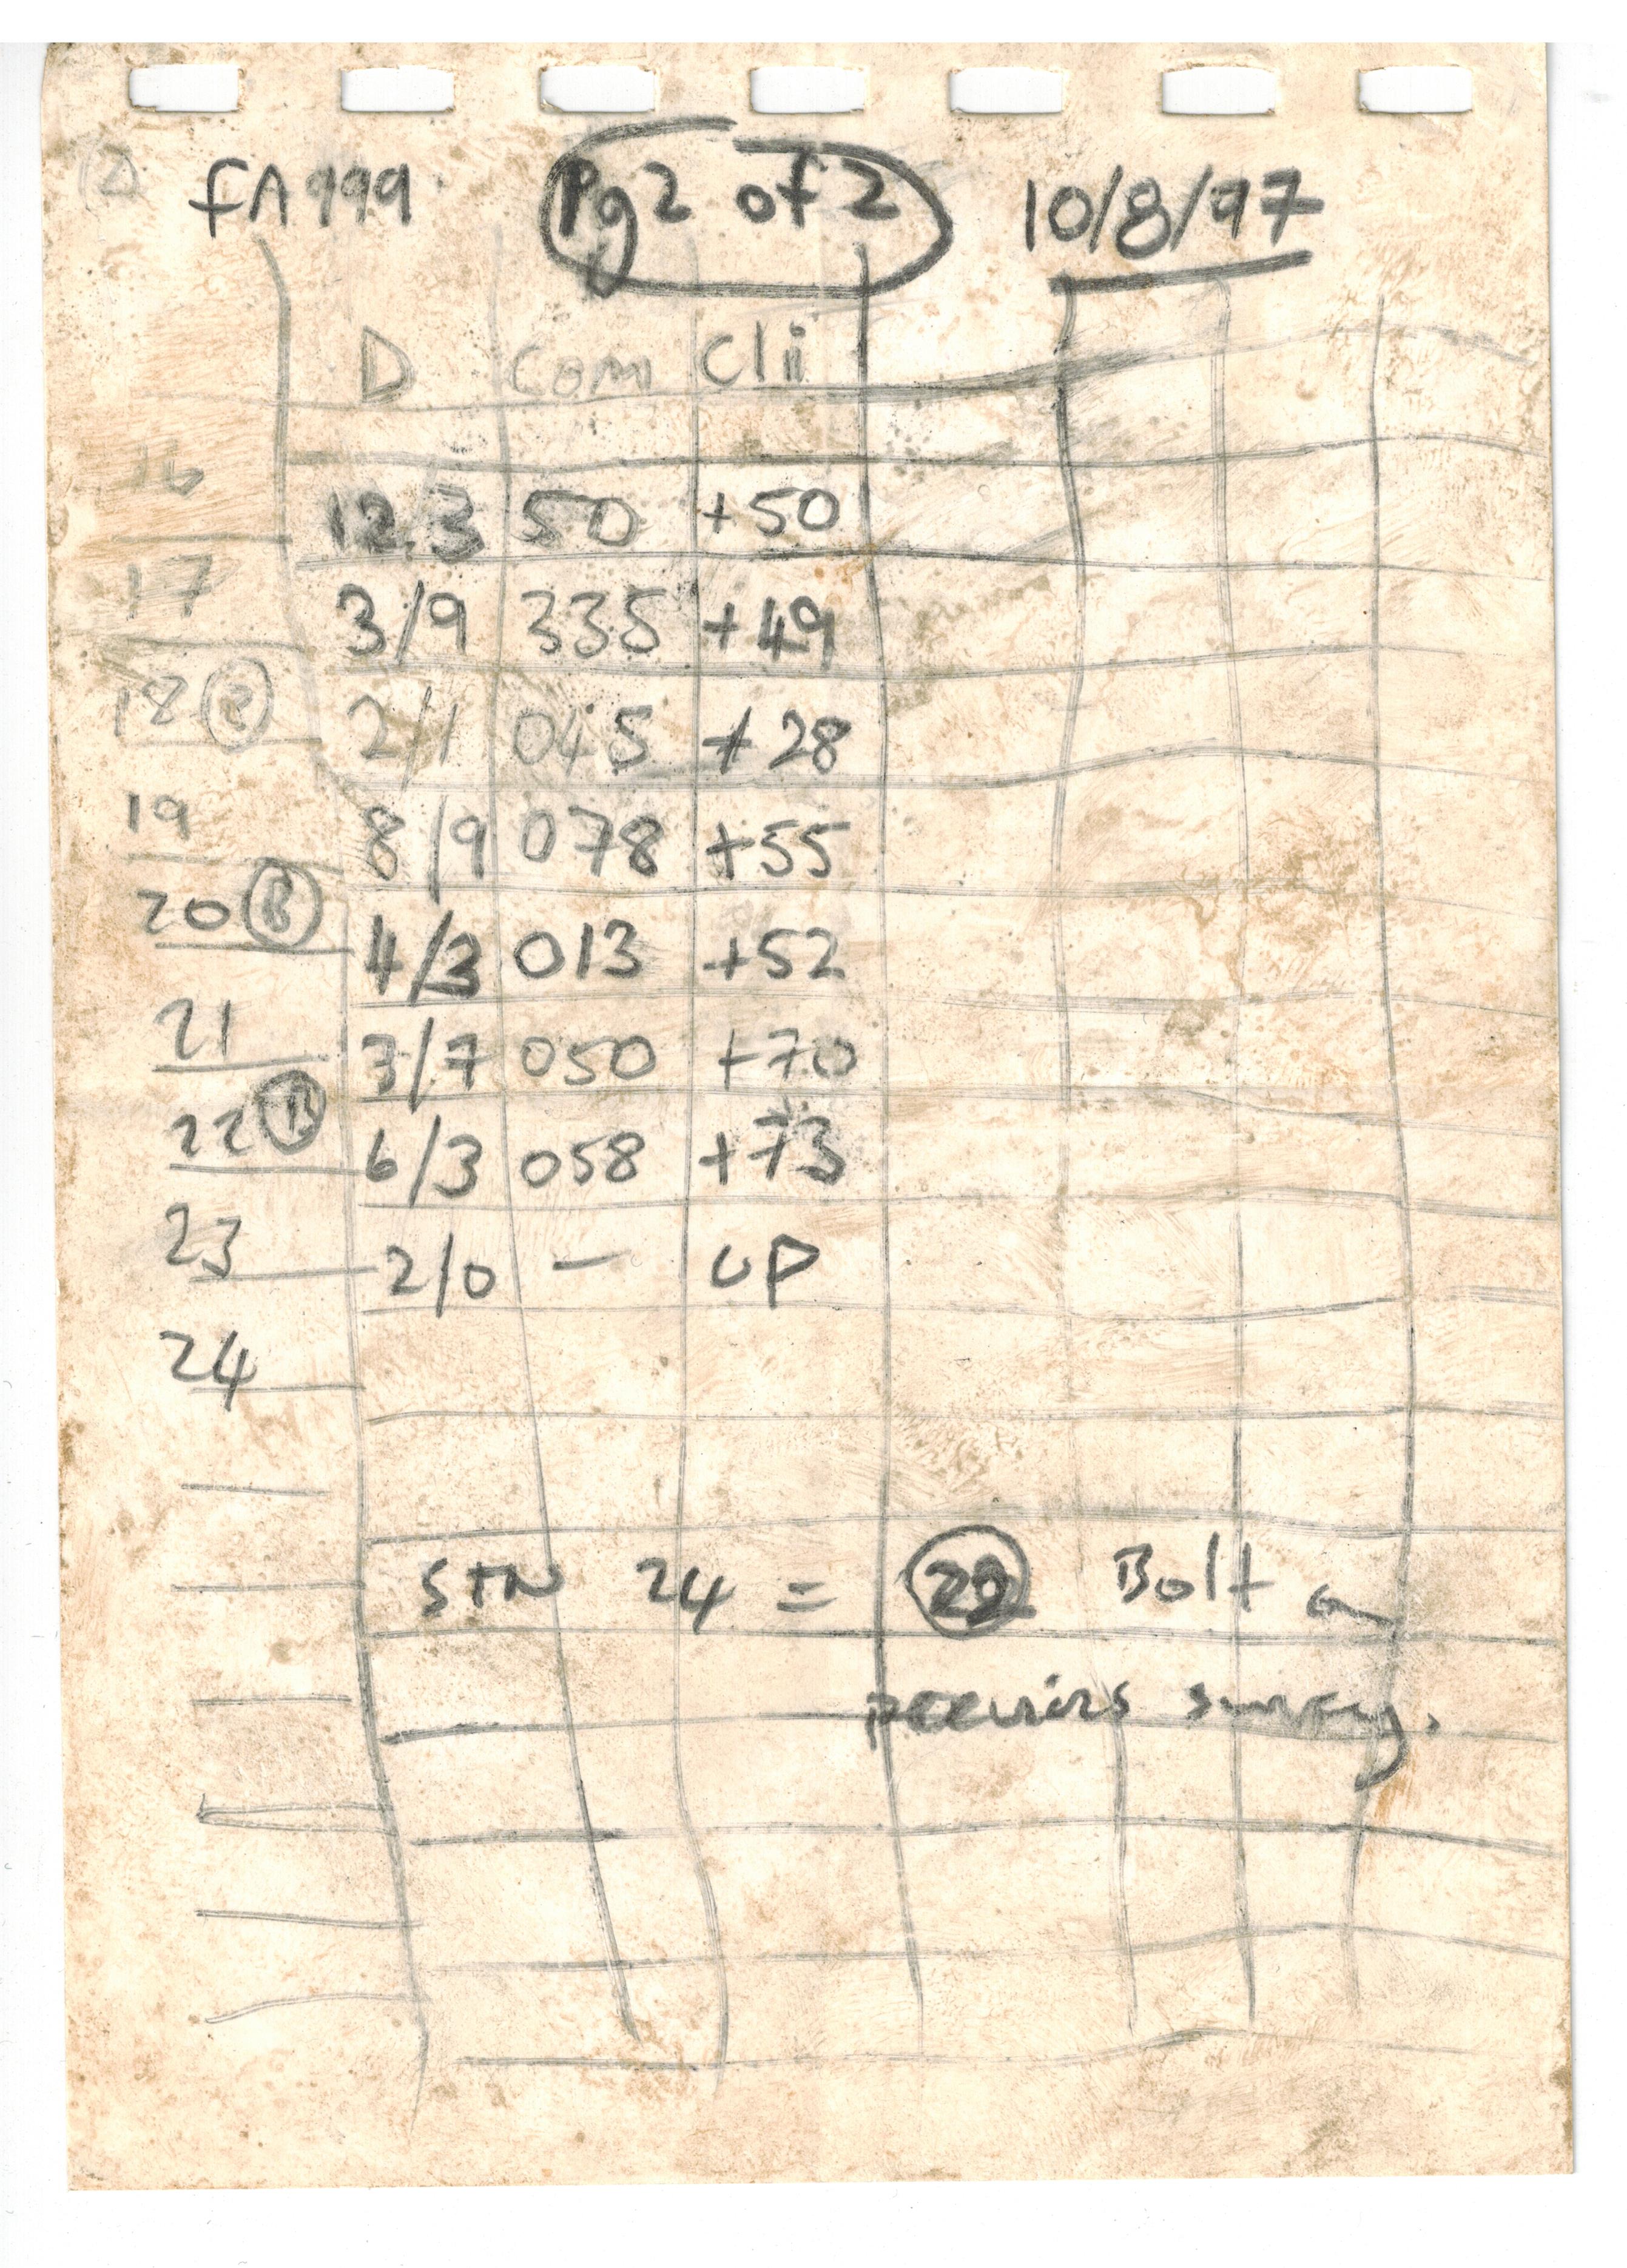 fA999 Pg 2 of 2 10/8/97
D Com Cli
16
12.3 50 +50
17
3/9 335 +49
18 (B)
2/1 045 +28
19
8/9 078 +55
20 (B)
4/3 013 +52
21
3/7 050 +70
22 (B)
6/3 058 +73
23
2/0 — UP
24
STN 24 = (22) Bolt on
survey.